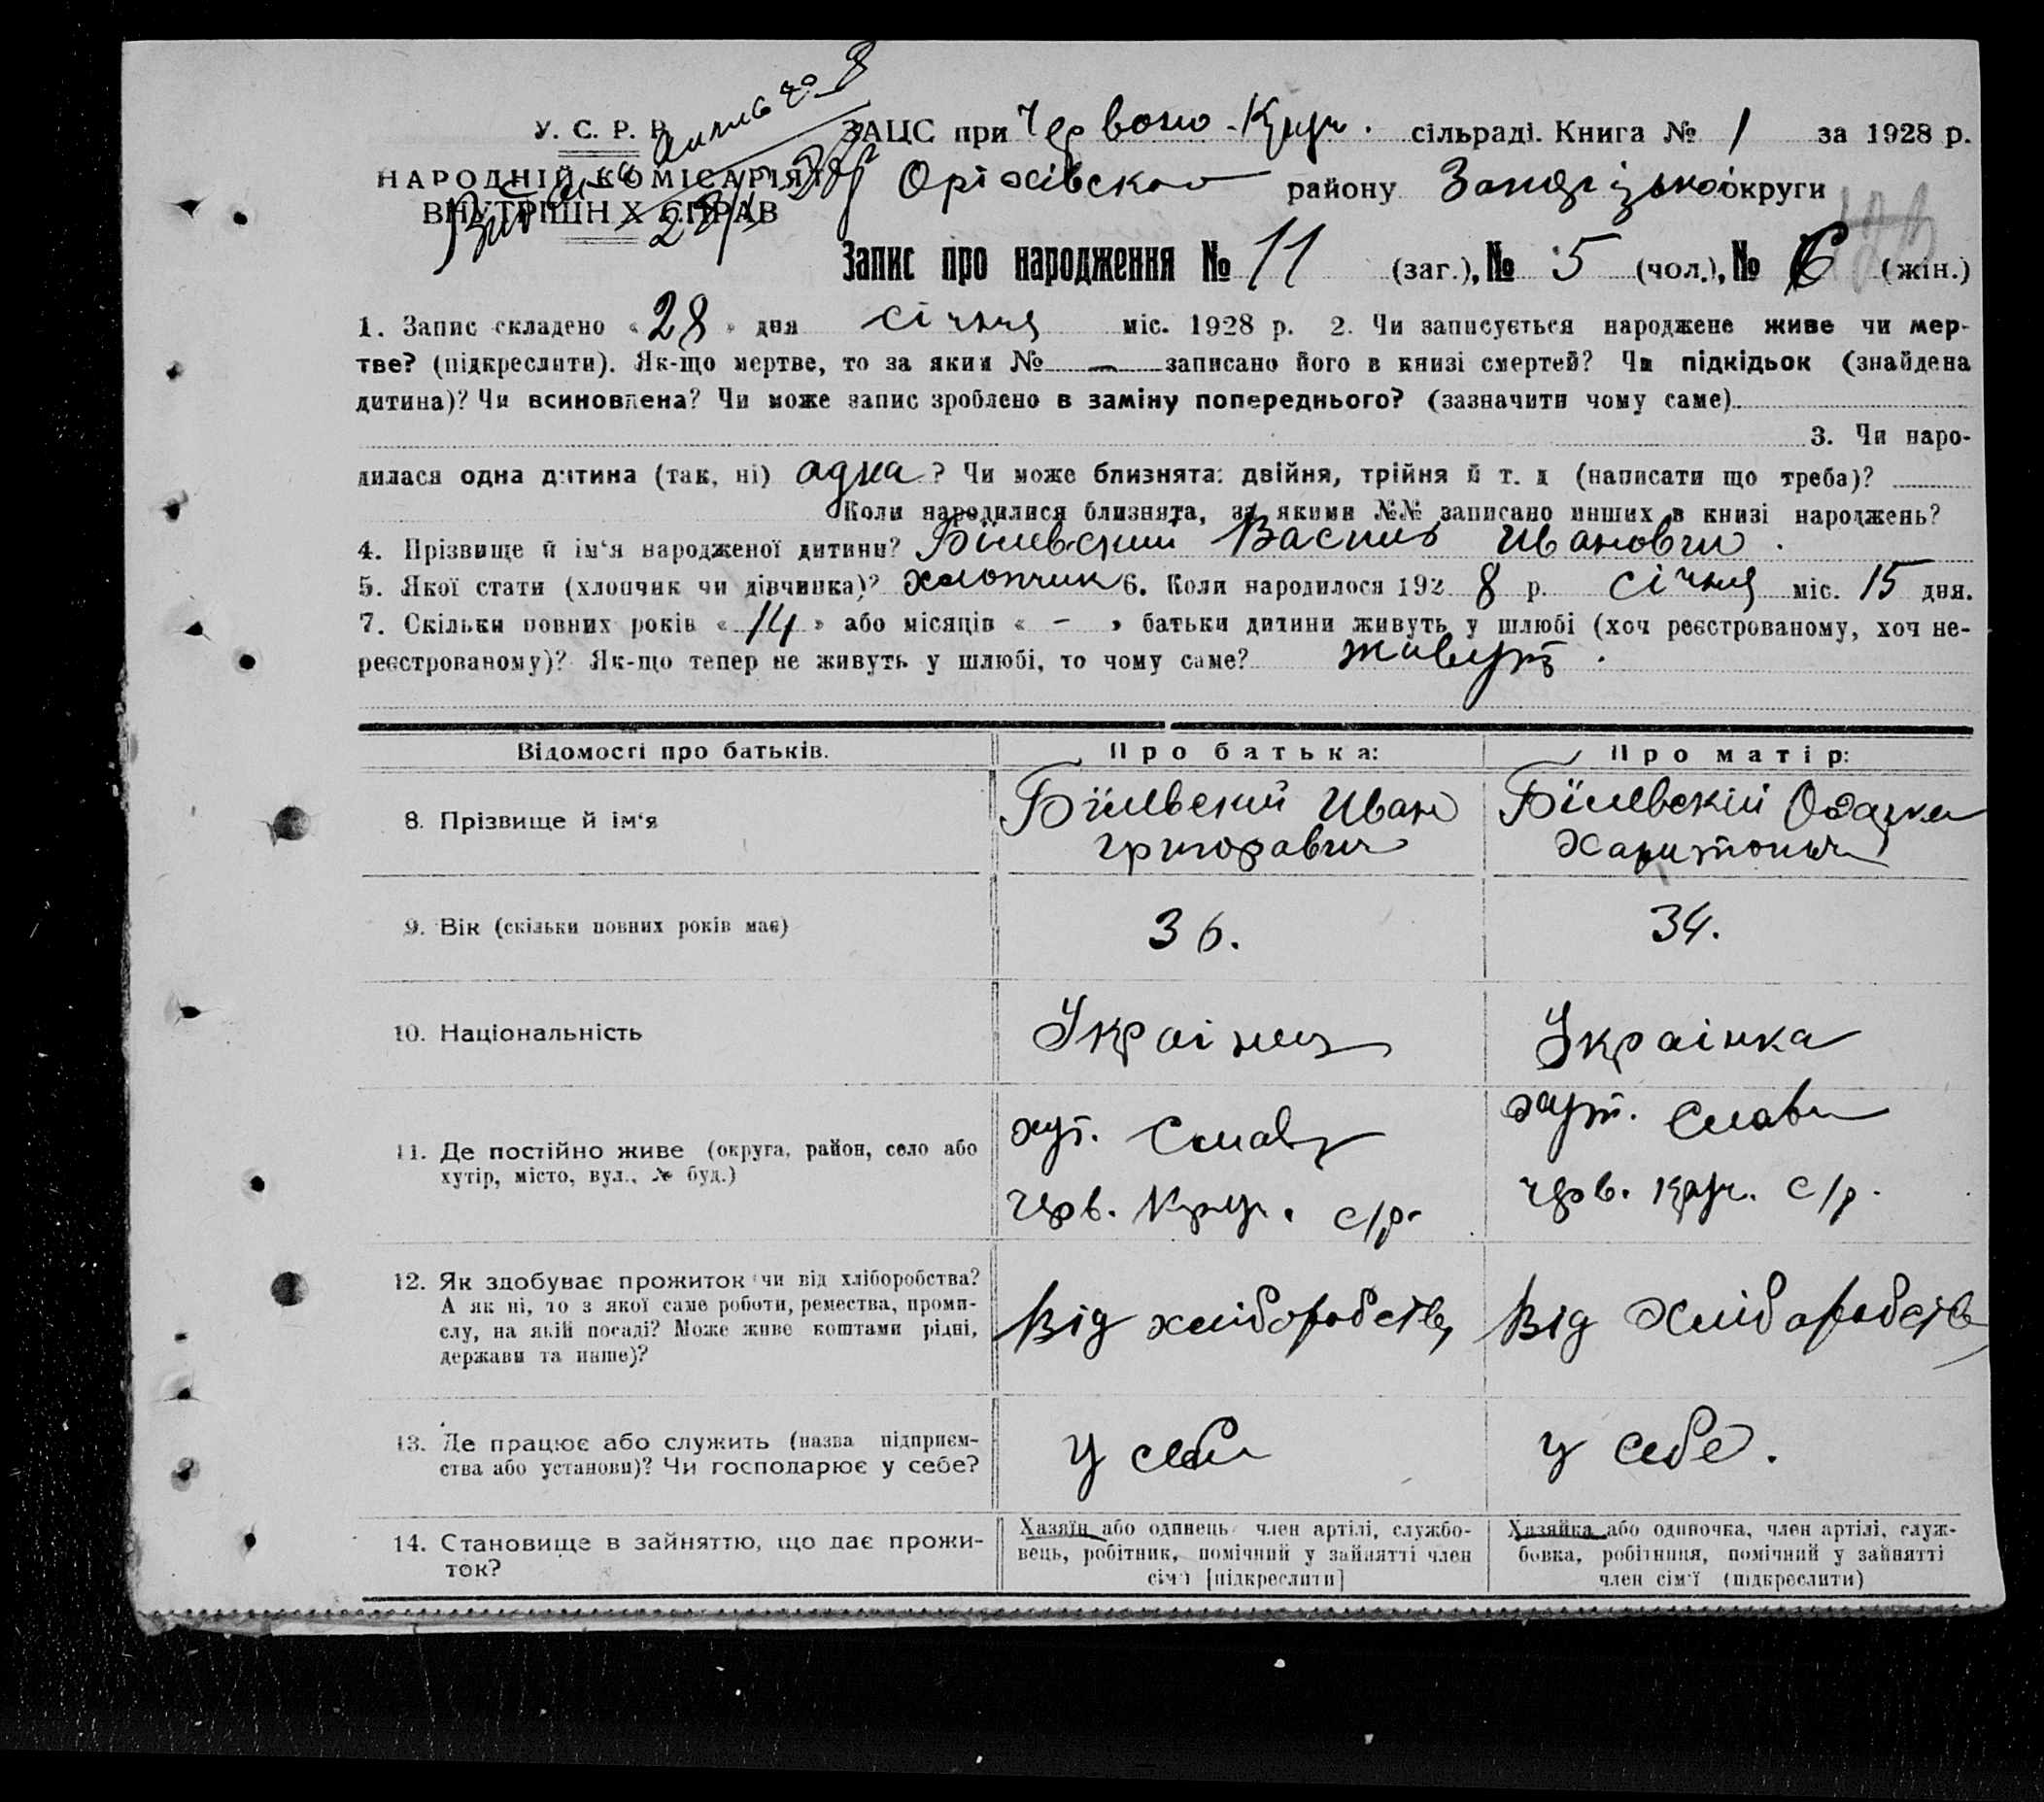 У. С. Р. Р.
НАРОДНІЙ КОМІСАРІЯТ
ВНУТРІШНІХ СПРАВ
28/I
ЗАЦС при Червоно-Круч. сільраді. Книга № 1 за 1928 р.
Оріхівского району Запорізької округи
Запис про народження № 11 (заг.), № 5 (чол.), № 6 (жін.)
1. Запис складено «28» дня січня міс. 1928 р. 2. Чи записується народжене живе чи мер-
тве? (підкреслити). Як-що мертве, то за яким № — записано його в книзі смертей? Чи підкідьок (знайдена
дитина)? Чи всиновлена? Чи може запис зроблено в заміну попереднього? (зазначити чому саме)
3. Чи наро-
дилася одна дитина (так, ні) одна? Чи може близнята: двійня, трійня й т. д (написати що треба)?
Коли народилися близнята, за якими №№ записано инших в книзі народжень?
4. Прізвище й ім‘я народженої дитини? Білевский Василь Иванович.
5. Якої стати (хлопчик чи дівчинка)? хлопчик 6. Коли народилося 1928 р. січня міс. 15 дня.
7. Скільки повних років «14» або місяців « - » батьки дитини живуть у шлюбі (хоч реєстрованому, хоч не-
реєстрованому)? Як-що тепер не живуть у шлюбі, то чому саме? живуть.
Відомості про батьків. Про батька: Про матір:
8. Прізвище й ім‘я Білевский Иван Білевскій Одарка
григоравич
9. Вік (скільки повних років має) 36. 34.
10. Національність Украінец Украінка
11. Де постійно живе (округа, район, село або
хутір, місто, вул., № буд.)
хут. хут.
Черв. Круч. с/р. черв. круч. с/р.
12. Як здобуває прожиток чи від хліборобства?
А як ні, то з якої саме роботи, ремества, проми-
слу, на якій посаді? Може живе коштами рідні,
держави та инше)?
Від хліборобств Від Хліборобств
13. Де працює або служить (назва підприєм-
ства або установи)? Чи господарює у себе?
У себе У себе.
14. Становище в зайняттю, що дає прожи-
ток?
Хазяїн або одинець член артілі, службо-
вець, робітник, помічний у зайнятті член
сім‘ї [підкреслити]
Хазяйка або одиночка, член артілі, служ-
бовка, робітниця, помічний у зайнятті
член сім‘ї (підкреслити)